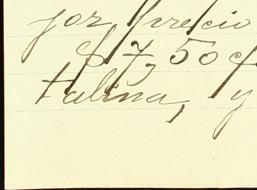 por precio
$7,50 c
talina, y